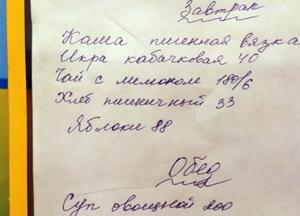 Завтрак
Каша пшенная вязка
Икра кабачковая 40
Чай с лимоном 180/6
Хлеб пшеничный 33
Яблоки 88
Обед
Суп овощной 200